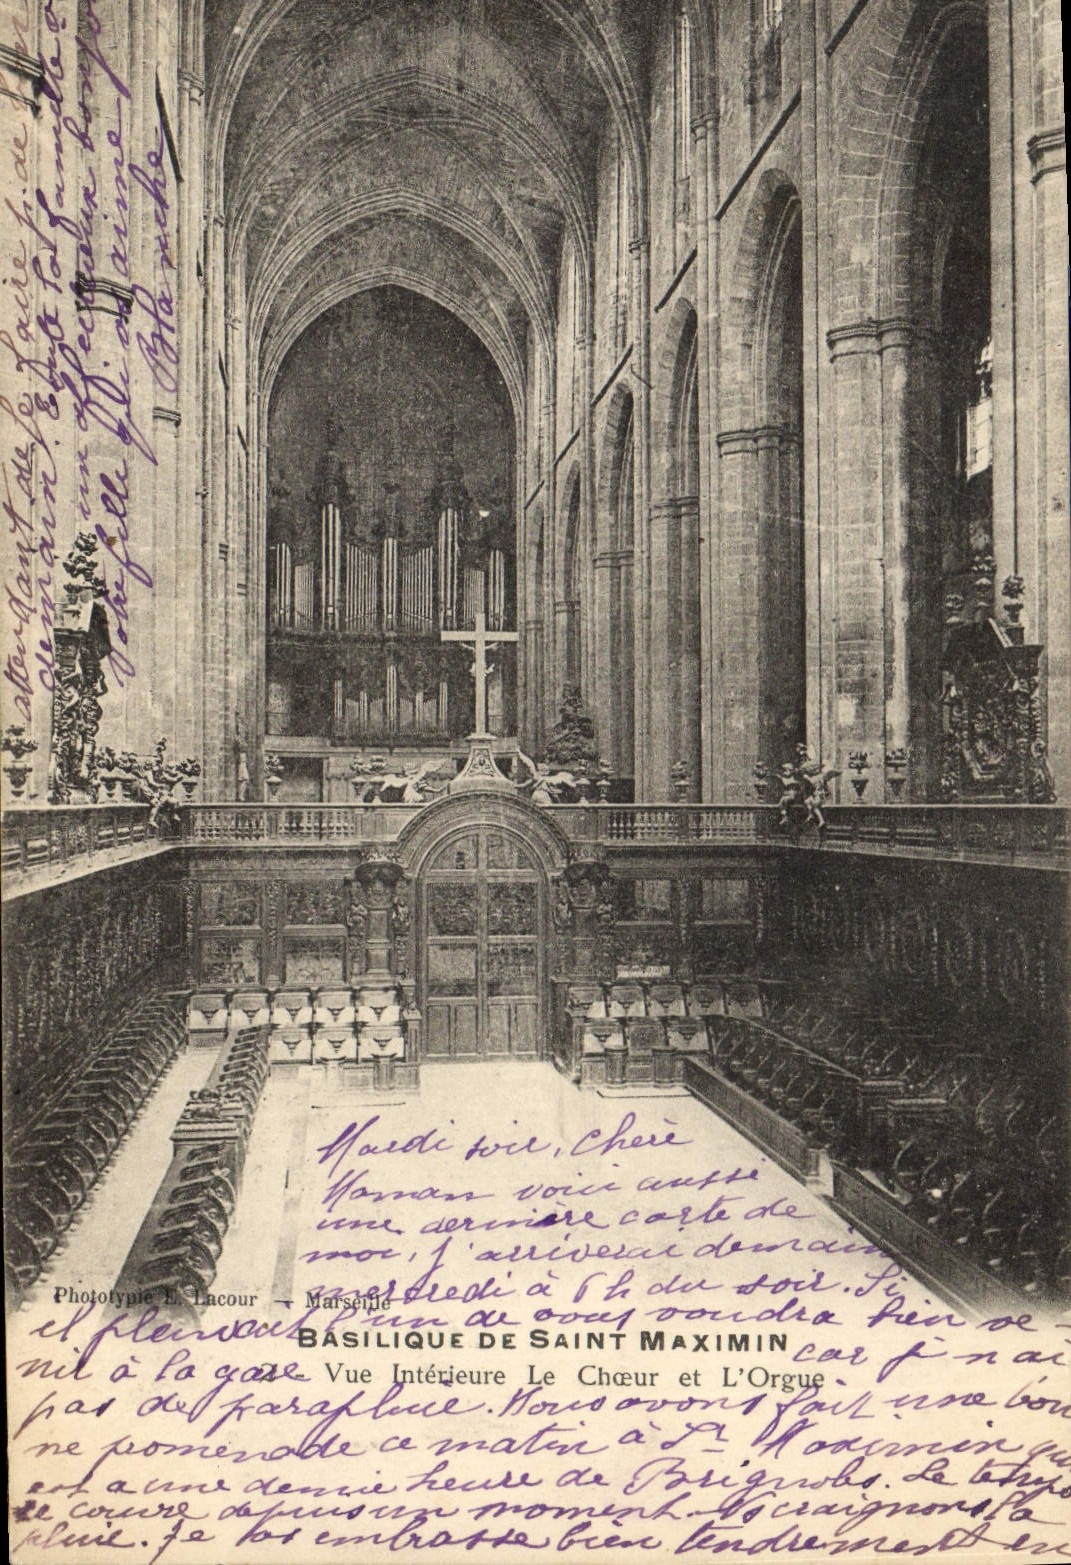 Mardi soir, Chère
Maman voici aussi
une dernière carte de
moi, j'arriverai demain
mercredi à 6h du soir. Si
il pleuvait l'un de vous voudra bien ve-
nir à la gare car je n'ai
pas de parapluie. Nous avons fait une bon
ne promenade ce matin à St Maximin qui
est a une demie heure de Brignoles. Le temps
se couvre depuis un moment craignons la
pluie. Je vs embrasse bien tendrement en
attendant de le faire de
demain. Toute la famille
un affectueux bonjour
Votre fille qui vs aime
Blanche
Phototypie E. Lacour - Marseille
BASILIQUE DE SAINT MAXIMIN
2 - Vue Intérieure Le Chœur et L'Orgue